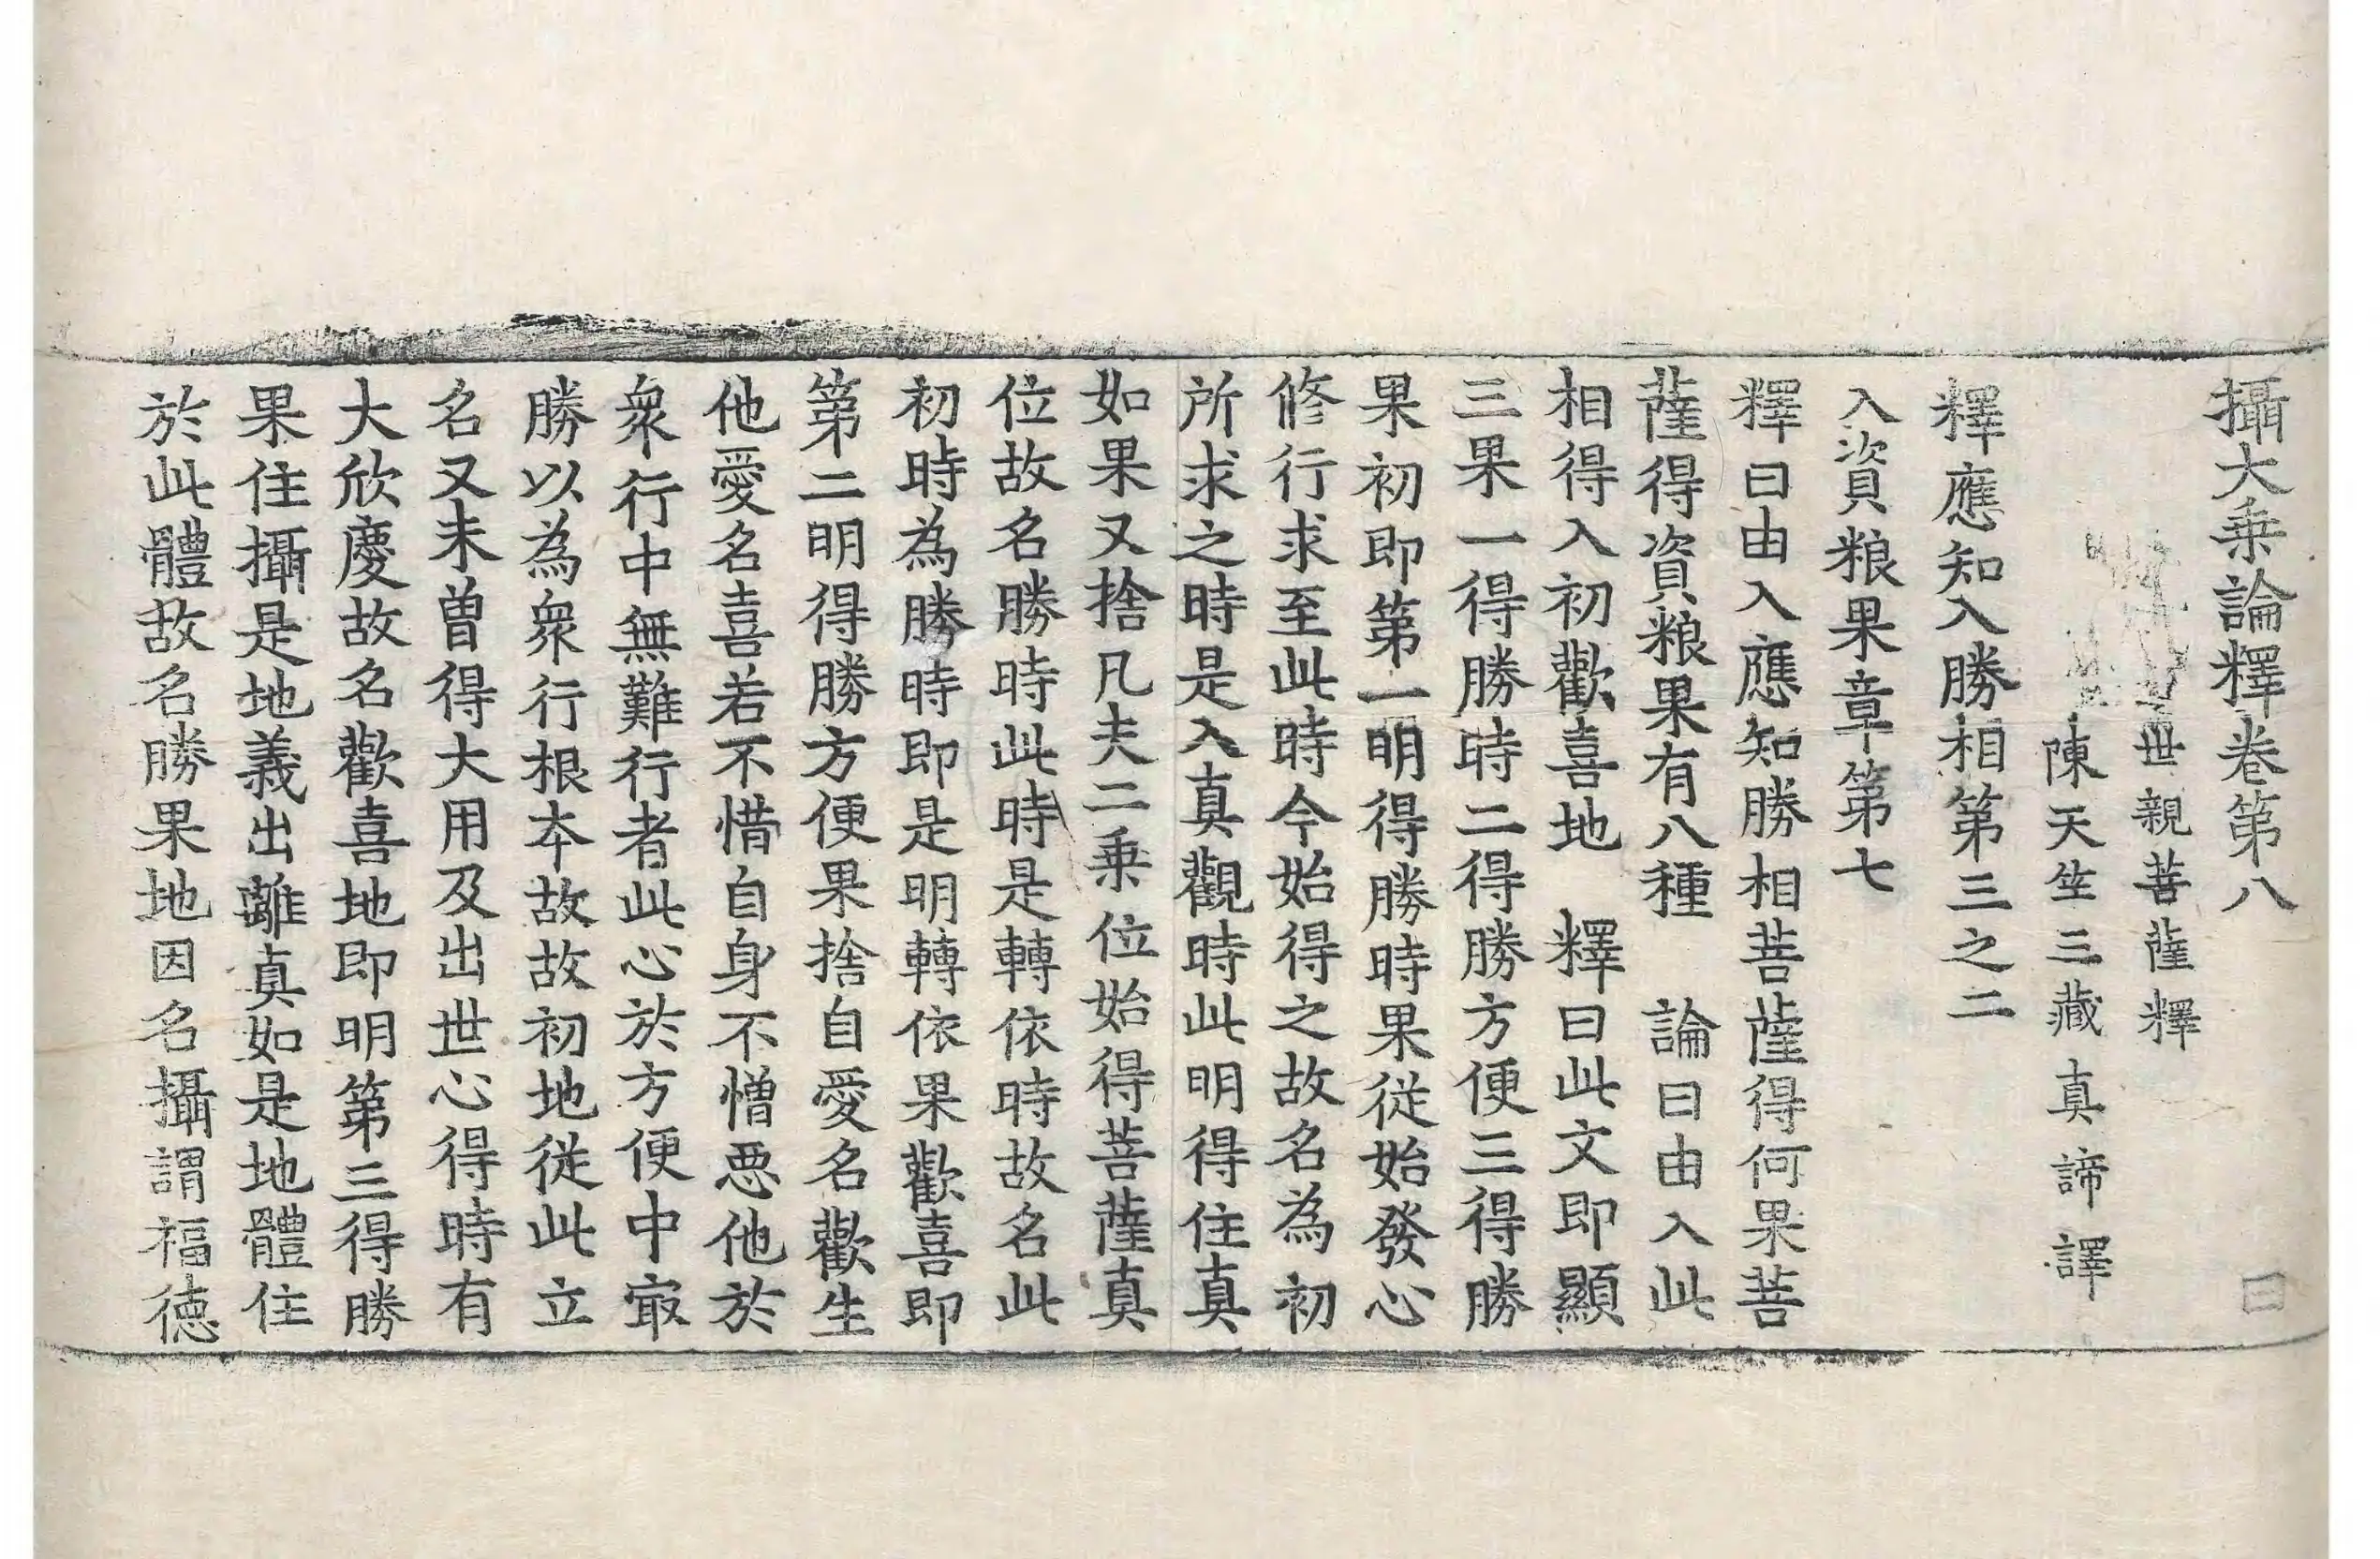 攝大乗論釋卷第八　曰
世親菩薩釋
陳天竺三藏真諦譯
釋應知入勝相第三之二
入資粮果章第七
釋曰由入應知勝相菩薩得何果菩
薩得資粮果有八種　論曰由入此
相得入初歡喜地　釋曰此文即顯
三果一得勝時二得勝方便三得勝
果初即第一明得勝時果從始發心
修行求至此時今始得之故名為初
所求之時是入真觀時此明得住真
如果又捨凡夫二乗位始得菩薩真
位故名勝時此時是轉依時故名此
初時為勝時即是明轉依果歡喜即
第二明得勝方便果捨自愛名歡生
他愛名喜若不惜自身不憎惡他於
衆行中無難行者此心於方便中㝡
勝以為衆行根本故故初地從此立
名又未曾得大用及出世心得時有
大欣慶故名歡喜地即明第三得勝
果住攝是地義出離真如是地體住
於此體故名勝果地因名攝謂福德